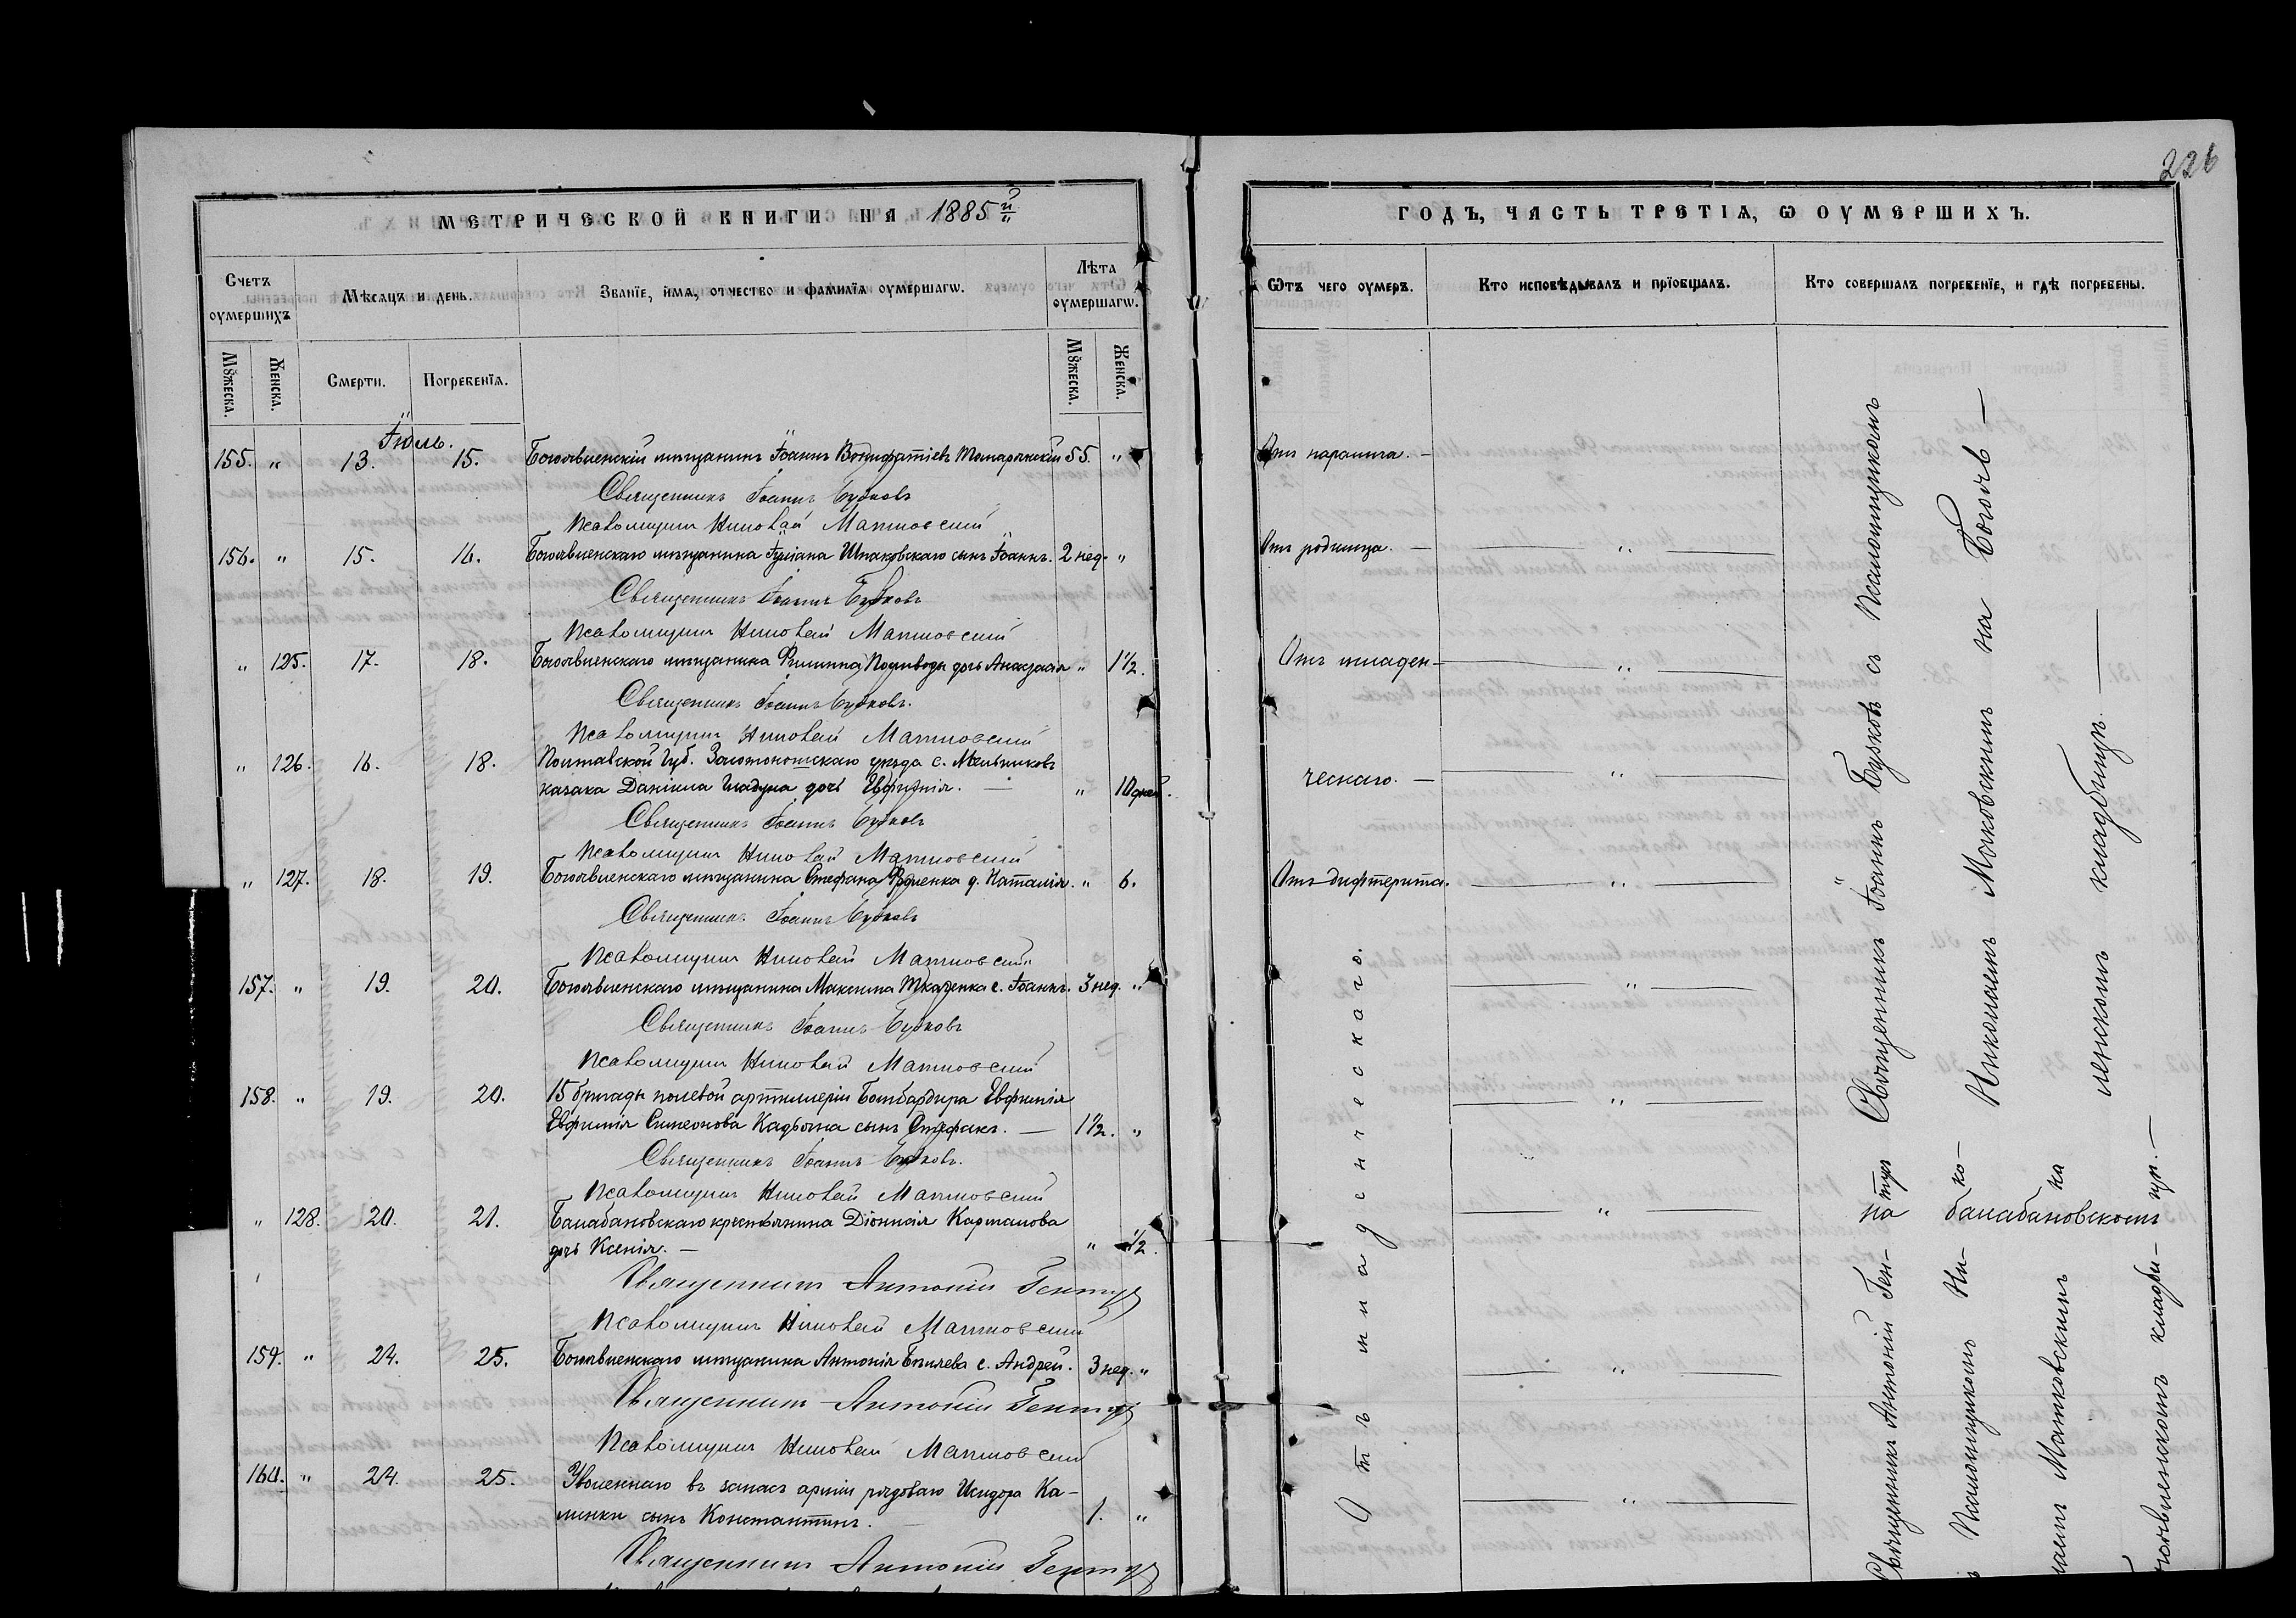 226
МЕТРИЧЕСКОЙ КНИГИ НА 1885й
Счетъ оумершихъ
Мѣсяцъ и день.
Званїе, имя, отчество и фамилїя оумершагѡ.
Лѣта оумершагѡ.
Мꙋжеска. Женска. Смерти. Погребенїя. Мꙋжеска. Женска.
Іюль.
155. " 13. 15. Богоявленскій мѣщанинъ Іоаннъ Вонифатіевъ 55. "
Священникъ Іоаннъ Бузковъ
Псаломщикъ Николай Матковскій
156. " 15. 16. Богоявленскаго мѣщанина Іуліана Шпаковскаго сынъ Іоаннъ. 2 нед. "
Священникъ Іоаннъ Бузковъ
Псаломщикъ Николай Матковскій
" 125. 17. 18. Богоявленскаго мѣщанина Филиппа дочь Анастасія " 1½.
Священникъ Іоаннъ Бузковъ.
Псаломщикъ Николай Матковскій
" 126. 16. 18. Полтавской губ. Золотоношскаго уѣзда с. Мельниковъ
казака Даніила Гладуна дочь Евфимія. — " 10 дней.
Священникъ Іоаннъ Бузковъ
Псаломщикъ Николай Матковскій
" 127. 18. 19. Богоявленскаго мѣщанина Стефана д. Наталія. " 6.
Священникъ Іоаннъ Бузковъ
Псаломщикъ Николай Матковскій
157. " 19. 20. Богоявленскаго мѣщанина Максима Ткаченка с. Іоаннъ. 3 нед. "
Священникъ Іоаннъ Бузковъ
Псаломщикъ Николай Матковскій
158. " 19. 20. 15 бригады полевой артиллеріи Бомбардира Евфимія
Евфимія Симеонова сынъ Стефанъ. — 1½. "
Священникъ Іоаннъ Бузковъ.
Псаломщикъ Николай Матковскій
" 128. 20. 21. Балабановскаго крестьянина Діонисія Карталова
дочь Ксенія. — " ½.
Священникъ Антоній Гентуз
Псаломщикъ Николай Матковскій
159. " 24. 25. Богоявленскаго мѣщанина Антонія с. Андрей. 3 нед. "
Священникъ Антоній Гентуз
Псаломщикъ Николай Матковскій
160. " 24. 25. Уволеннаго въ запасъ арміи рядоваго Исидора Ка-
линки сынъ Константинъ. — 1. "
Священникъ Антоній Гентуз
ГОДЪ, ЧАСТЬ ТРЕТІЯ, Ѡ ОУМЕРШИХЪ.
Ѿтъ чего оумеръ.
Кто исповѣдывалъ и прїобщалъ.
Кто совершалъ погребенїе, и гдѣ погребены.
Отъ паралича. —
Отъ родимца. — — " —
Отъ младен- — " —
ческаго. — — " —
Отъ дифтерита. — " —
Отъ младенческаго.
Священникъ Іоаннъ Бузковъ съ Псаломщикомъ
Николаемъ Матковскимъ на Богояв —
ленскомъ кладбищѣ. —
на балабановскомъ
Священникъ Антоній Ген-туз
съ Псаломщикомъ Ни-ко-
лаемъ Матковскимъ на
Богоявленскомъ кладби-щѣ. —